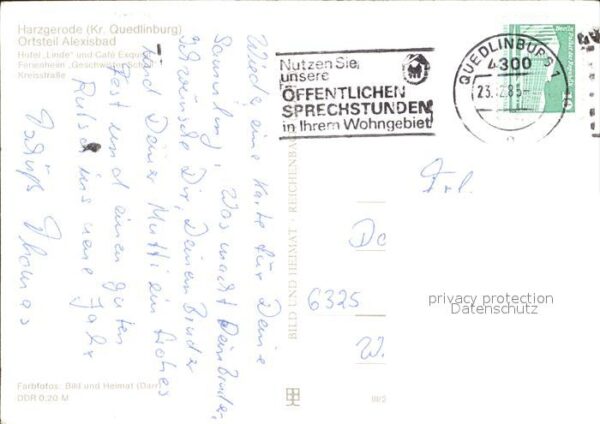 Harzgerode (Kr. Quedlinburg)
Ortsteil Alexisbad
Hotel „Linde“ und Café Exquisit
Ferienheim „Geschwister Scholl“
Kreisstraße
Wieder eine Karte für Deine
Sammlung, Was macht Dein Bruder,
Ich wünsche Dir, Deinem Bruder
und Deiner Mutti ein frohes
Fest und einen guten
Rutsch ins neue Jahr
Tschüß Thomas
Farbfotos: Bild und Heimat (Darr)
DDR 0,20 M
BILD UND HEIMAT REICHENBACH
III/2
Nutzen Sie
unsere
ÖFFENTLICHEN
SPRECHSTUNDEN
in Ihrem Wohngebiet!
QUEDLINBURG 1
4300
23.12.85
Berlin
10
Frl.
6325
W.
privacy protection
Datenschutz